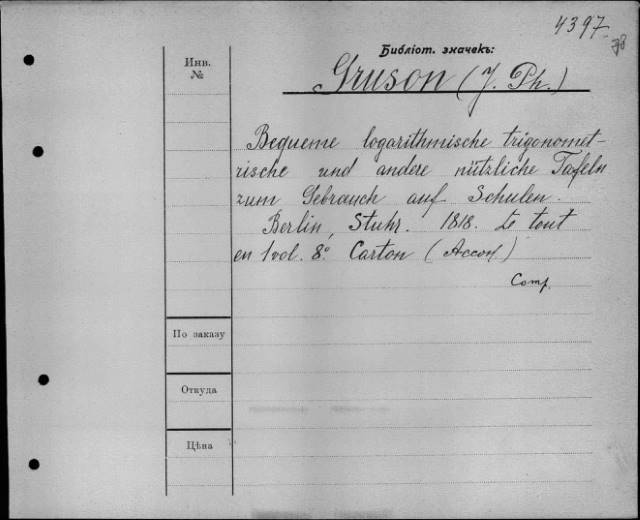 4397
78
Библіот. значекъ:
Инв.
№
Gruson (J. Ph.)
Bequeme logarithmische trigonomet-
rische und andere nützliche Tafeln
zum Gebrauch auf Schulen.
Berlin, Stuhr. 1818. Le tout
en 1 vol. 8º Carton (
Comp.
По заказу
Откуда
Цѣна